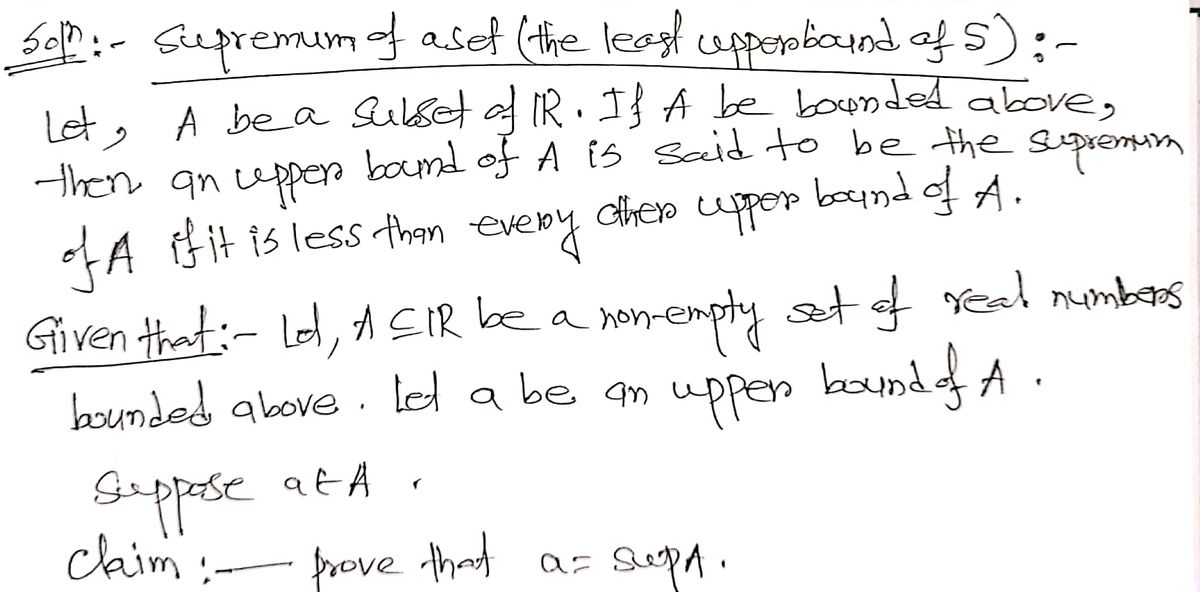 Soln:- Supremum of a set (the least upper bound of S) :-
Let, A be a Subset of IR. If A be bounded above,
then an upper bound of A is said to be the supremum
of A if it is less than every other upper bound of A.
Given that:- Let, A ⊆ IR be a non-empty set of real numbers
bounded above. Let a be an upper bound of A.
Suppose a ∈ A.
Claim:— prove that a = supA.